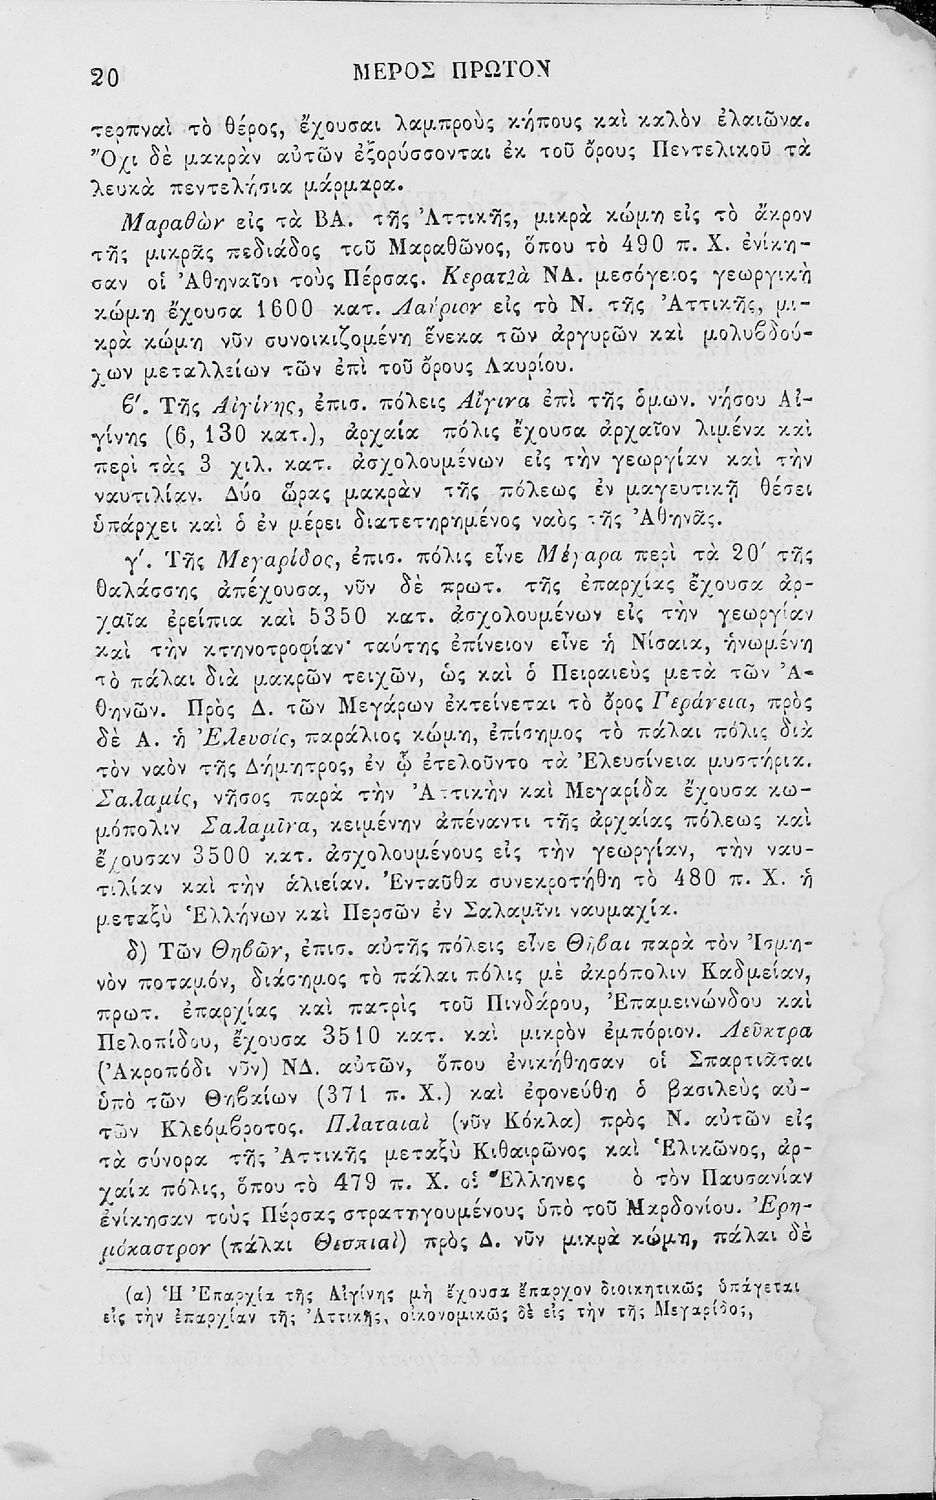 20
ΜΕΡΟΣ ΠΡΩΤΟΝ
τερπναὶ τὸ θέρος, ἔχουσαι λαμπροὺς κήπους καὶ καλὸν ἐλαιῶνα.
Ὄχι δὲ μακρὰν αὐτῶν ἐξορύσσονται ἐκ τοῦ ὄρους Πεντελικοῦ τὰ
λευκὰ πεντελήσια μάρμαρα.
Μαραθὼν εἰς τὰ ΒΑ. τῆς Ἀττικῆς, μικρὰ κώμη εἰς τὸ ἄκρον
τῆς μικρᾶς πεδιάδος τοῦ Μαραθῶνος, ὅπου τὸ 490 π. Χ. ἐνίκη-
σαν οἱ Ἀθηναῖοι τοὺς Πέρσας. Κερατιὰ ΝΔ. μεσόγειος γεωργικὴ
κώμη ἔχουσα 1600 κατ. Λαύριον εἰς τὸ Ν. τῆς Ἀττικῆς, μι-
κρὰ κώμη νῦν συνοικιζομένη ἕνεκα τῶν ἀργυρῶν καὶ μολυβδού-
χων μεταλλείων τῶν ἐπὶ τοῦ ὄρους Λαυρίου.
β′. Τῆς Αἰγίνης, ἐπισ. πόλεις Αἴγινα ἐπὶ τῆς ὁμων. νήσου Αἰ-
γίνης (6,130 κατ.), ἀρχαία πόλις ἔχουσα ἀρχαῖον λιμένα καὶ
περὶ τὰς 3 χιλ. κατ. ἀσχολουμένων εἰς τὴν γεωργίαν καὶ τὴν
ναυτιλίαν. Δύο ὥρας μακρὰν τῆς πόλεως ἐν μαγευτικῇ θέσει
ὑπάρχει καὶ ὁ ἐν μέρει διατετηρημένος ναὸς τῆς Ἀθηνᾶς.
γ′. Τῆς Μεγαρίδος, ἐπισ. πόλις εἶνε Μέγαρα περὶ τὰ 20′ τῆς
θαλάσσης ἀπέχουσα, νῦν δὲ πρωτ. τῆς ἐπαρχίας ἔχουσα ἀρ-
χαῖα ἐρείπια καὶ 5350 κατ. ἀσχολουμένων εἰς τὴν γεωργίαν
καὶ τὴν κτηνοτροφίαν· ταύτης ἐπίνειον εἶνε ἡ Νίσαια, ἡνωμένη
τὸ πάλαι διὰ μακρῶν τειχῶν, ὡς καὶ ὁ Πειραιεὺς μετὰ τῶν Ἀ-
θηνῶν. Πρὸς Δ. τῶν Μεγάρων ἐκτείνεται τὸ ὄρος Γεράνεια, πρὸς
δὲ Α. ἡ Ἐλευσίς, παράλιος κώμη, ἐπίσημος τὸ πάλαι πόλις διὰ
τὸν ναὸν τῆς Δήμητρος, ἐν ᾧ ἐτελοῦντο τὰ Ἐλευσίνεια μυστήρια.
Σαλαμίς, νῆσος παρὰ τὴν Ἀττικὴν καὶ Μεγαρίδα ἔχουσα κω-
μόπολιν Σαλαμῖνα, κειμένην ἀπέναντι τῆς ἀρχαίας πόλεως καὶ
ἔχουσαν 3500 κατ. ἀσχολουμένους εἰς τὴν γεωργίαν, τὴν ναυ-
τιλίαν καὶ τὴν ἁλιείαν. Ἐνταῦθα συνεκροτήθη τὸ 480 π. Χ. ἡ
μεταξὺ Ἑλλήνων καὶ Περσῶν ἐν Σαλαμῖνι ναυμαχία.
δ) Τῶν Θηβῶν, ἐπισ. αὐτῆς πόλεις εἶνε Θῆβαι παρὰ τὸν Ἰσμη-
νὸν ποταμόν, διάσημος τὸ πάλαι πόλις μὲ ἀκρόπολιν Καδμείαν,
πρωτ. ἐπαρχίας καὶ πατρὶς τοῦ Πινδάρου, Ἐπαμεινώνδου καὶ
Πελοπίδου, ἔχουσα 3510 κατ. καὶ μικρὸν ἐμπόριον. Λεῦκτρα
(Ἀκροπόδι νῦν) ΝΔ. αὐτῶν, ὅπου ἐνικήθησαν οἱ Σπαρτιᾶται
ὑπὸ τῶν Θηβαίων (371 π. Χ.) καὶ ἐφονεύθη ὁ βασιλεὺς αὐ-
τῶν Κλεόμβροτος. Πλαταιαὶ (νῦν Κόκλα) πρὸς Ν. αὐτῶν εἰς
τὰ σύνορα τῆς Ἀττικῆς μεταξὺ Κιθαιρῶνος καὶ Ἑλικῶνος, ἀρ-
χαία πόλις, ὅπου τὸ 479 π. Χ. οἱ Ἕλληνες ὸ τὸν Παυσανίαν
ἐνίκησαν τοὺς Πέρσας στρατηγουμένους ὑπὸ τοῦ Μαρδονίου. Ἐρη-
μόκαστρον (πάλαι Θεσπιαὶ) πρὸς Δ. νῦν μικρὰ κώμη, πάλαι δὲ
(α) Ἡ Ἐπαρχία τῆς Αἰγίνης μὴ ἔχουσα ἔπαρχον διοικητικῶς ὑπάγεται
εἰς τὴν ἐπαρχίαν τῆς Ἀττικῆς, οἰκονομικῶς δὲ εἰς τὴν τῆς Μεγαρίδος,